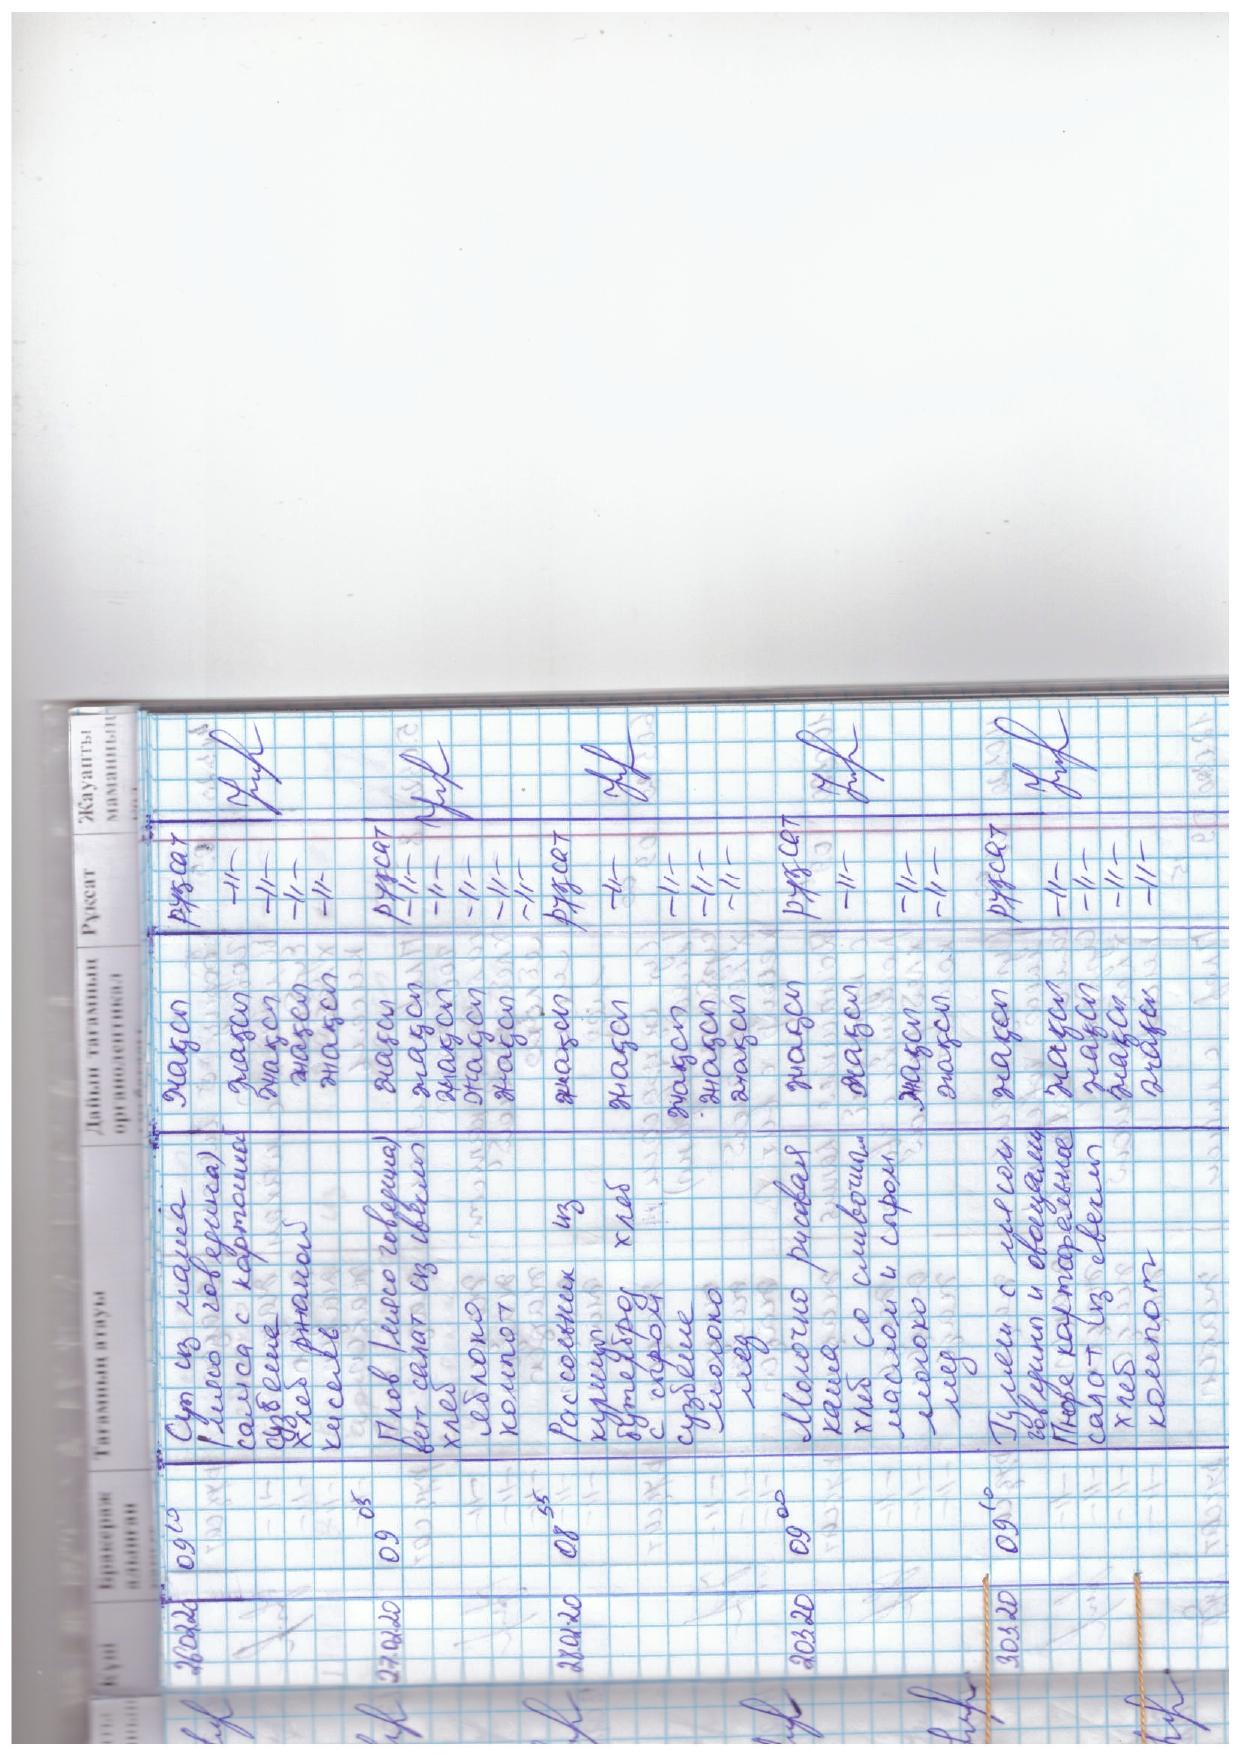 Күні Бракераж Тағамның атауы Дайын тағамның Рұқсат Жауапты
алынған органолептикал маманның
26.02.20 09 10 Суп из маша жақсы рұқсат
(мясо говядина)
самса с картошкой жақсы -//-
сузбеше жақсы -//-
хлеб ржаной жақсы -//-
кисель жақсы -//-
27.02.20 09 05 Плов (мясо говядина) жақсы рұқсат
вит салат из свеклы жақсы -//-
хлеб жақсы -//-
яблоко жақсы -//-
компот жақсы -//-
-//-
28.02.20 08 55 Рассольник из жақсы рұқсат
курицы
бутерброд хлеб жақсы -//-
с сыром
сузбеше жақсы -//-
молоко жақсы -//-
мед жақсы -//-
2.03.20 09 00 Молочно рисовая жақсы рұқсат
каша
хлеб со сливочным жақсы -//-
маслом и сыром
молоко жақсы -//-
мед жақсы -//-
3.03.20 09 10 Гуляш с мясом жақсы рұқсат
говядины и овощами
Пюре картофельное жақсы -//-
салат из свеклы жақсы -//-
хлеб жақсы -//-
компот жақсы -//-